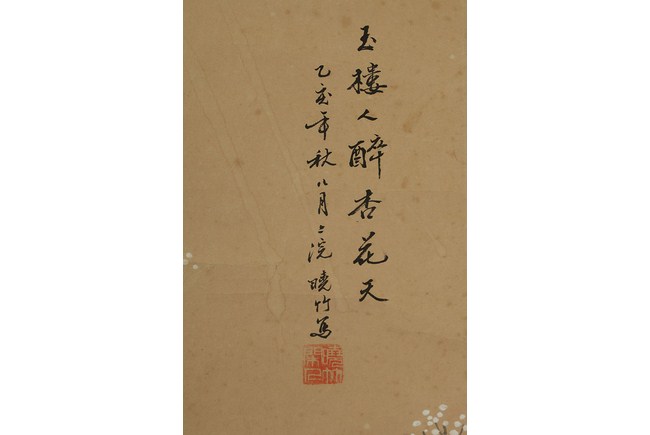 玉楼人醉杏花天
乙亥年秋八月上浣曉竹写